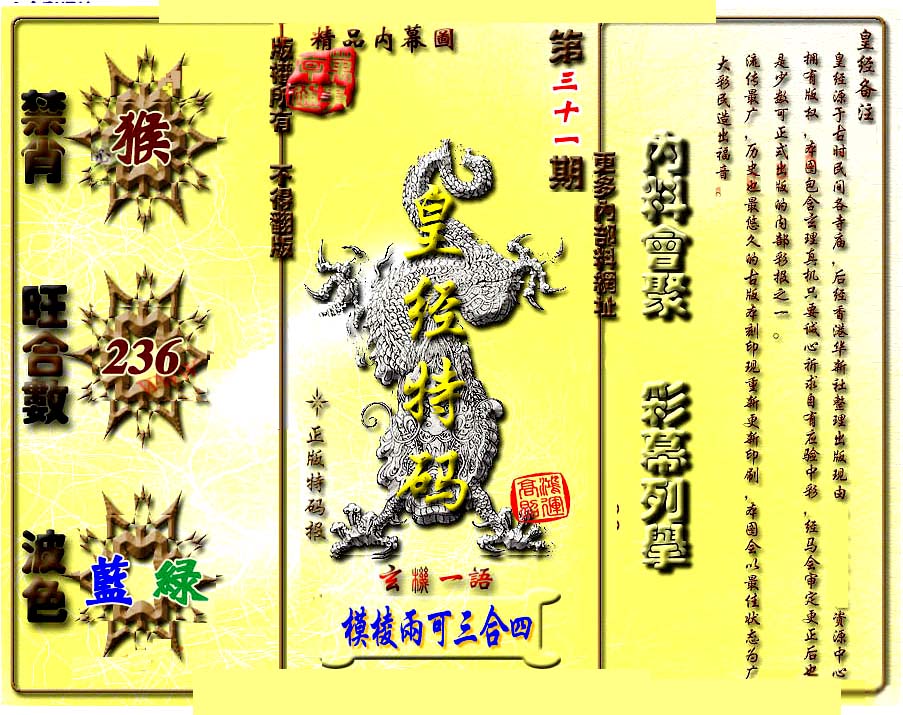 精品内幕圖
第三十一期
版權所有 不得翻版
禁肖
猴
旺合數
236
波色
藍 緑
皇经特码
正版特码报
鴻運高照
玄機一語
模棱兩可三合四
更多內部料網址
內料會聚 彩幕列舉
皇经备注
皇经源于古时民间各寺庙,后经香港华新社整理出版现由 资源中心
拥有版权,本图包含玄理真机只要诚心祈求自有应验中彩,经马会审定更正后也
是少数可正式出版的内部彩报之一。
流传最广,历史也最悠久的古版本刻印现重新更新印刷,本图会以最佳状态为广
大彩民造出福音